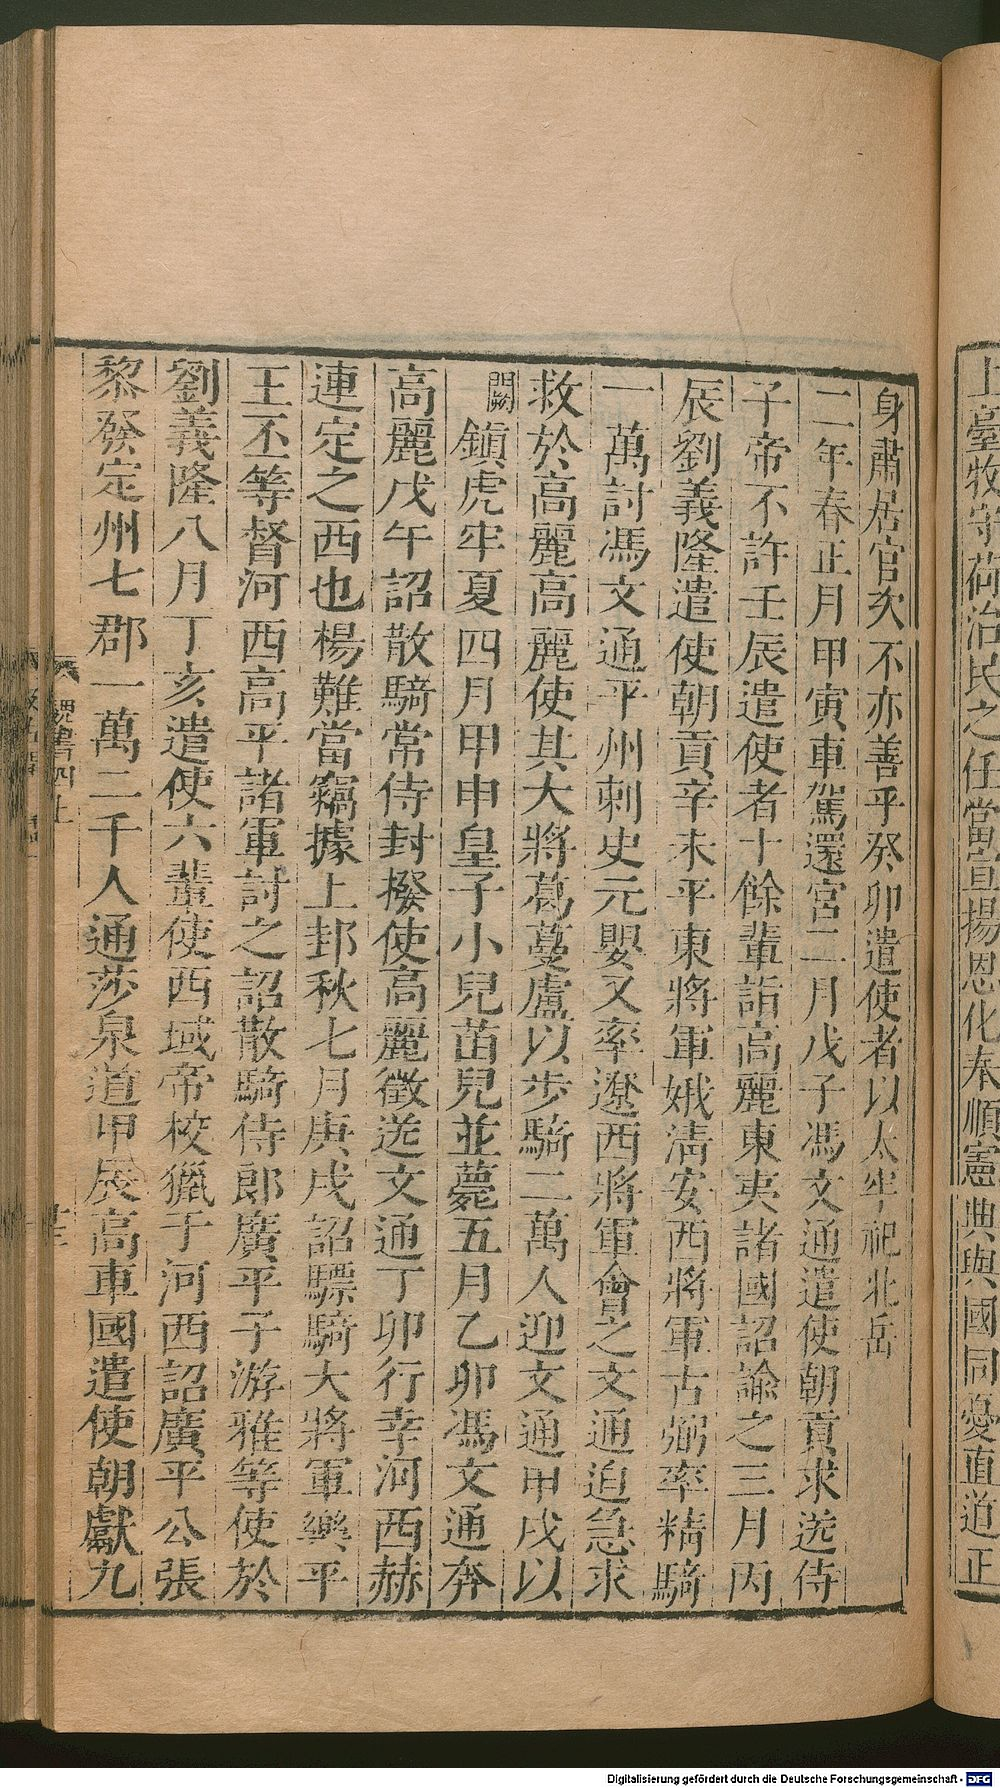 上臺牧守荷治民之任當宣揚恩化奉順憲典與國同憂直道正
身肅居官次不亦善乎癸卯遣使者以太牢祀北岳
二年春正月甲寅車駕還宮二月戊子馮文通遣使朝貢求送侍
子帝不許壬辰遣使者十餘輩詣高麗東夷諸國詔諭之三月丙
辰劉義隆遣使朝貢辛未平東將軍娥淸安西將軍古弼率精騎
一萬討馮文通平州刺史元嬰又率遼西將軍會之文通迫急求
救於高麗高麗使其大將葛蔓盧以步騎二萬人迎文通甲戌以
闕鎮虎牢夏四月甲申皇子小兒苗兒並薨五月乙卯馮文通奔
高麗戊午詔散騎常侍封撥使高麗徵送文通丁卯行幸河西赫
連定之西也楊難當竊據上邽秋七月庚戌詔驃騎大將軍樂平
王丕等督河西高平諸軍討之詔散騎侍郎廣平子游雅等使於
劉義隆八月丁亥遣使六輩使西域帝校獵于河西詔廣平公張
黎發定州七郡一萬二千人通莎泉道甲辰高車國遣使朝獻九
魏書四上
Digitalisierung gefördert durch die Deutsche Forschungsgemeinschaft - DFG